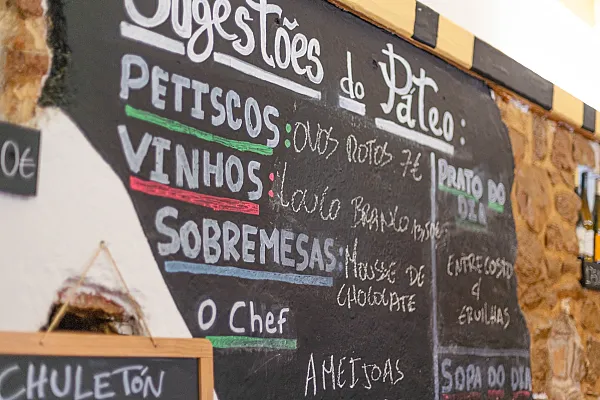 Sugestões do Páteo:
PETISCOS: OVOS ROTOS 7€
VINHOS: LOUCO BRANCO
SOBREMESAS: MOUSSE DE
CHOCOLATE
O Chef
AMEIJOAS
PRATO DO
DIA
ENTRECOSTO
ERVILHAS
SOPA DO DIA
0€
CHULETÓN